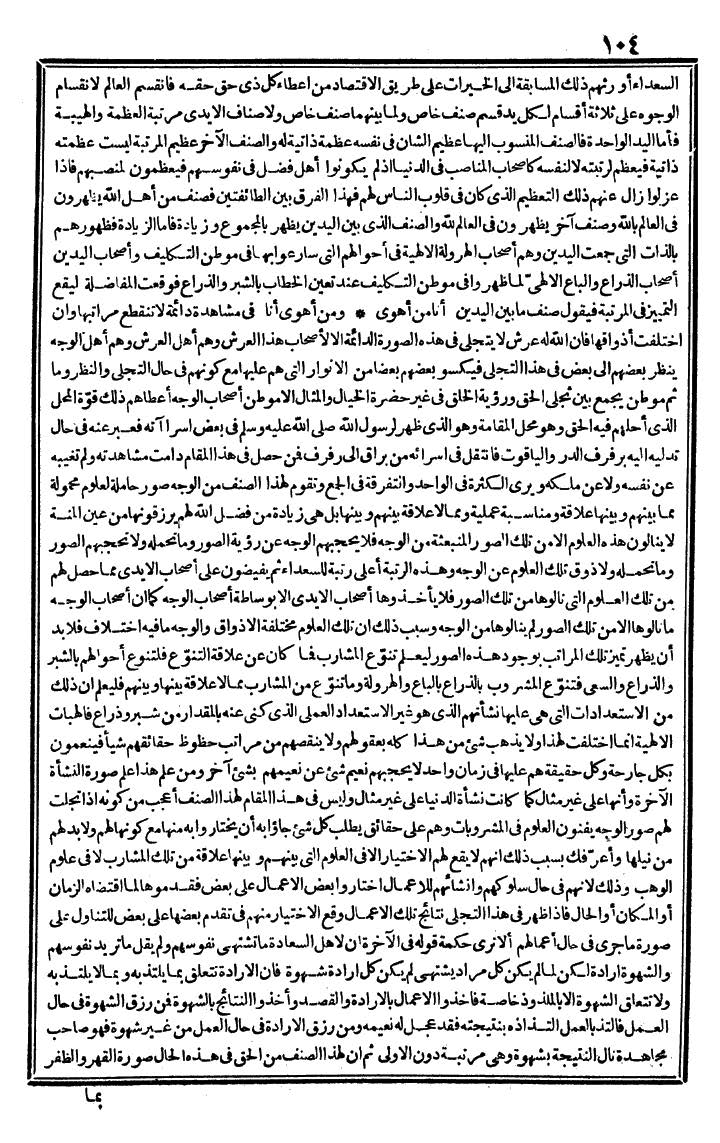 ١٠٤
السعداء أورثهم ذلك المسابقة الى الخيرات على طريق الاقتصاد من اعطاء كل ذى حق حقه فانقسم العالم لانقسام
الوجوه على ثلاثة أقسام لكل يد قسم صنف خاص ولما بينهما صنف خاص ولاصناف الايدى مرتبة العظمة والهيبة
فأما اليد الواحدة فالصنف المنسوب اليها عظيم الشان فى نفسه عظمة ذاتية له والصنف الآخر عظيم المرتبة ليست عظمته
ذاتية فيعظم لرتبته لا لنفسه كاصحاب المناصب فى الدنيا اذ لم يكونوا أهل فضل فى نفوسهم فيعظمون لمنصبهم فاذا
عزلوا زال عنهم ذلك التعظيم الذى كان فى قلوب الناس لهم فهذا الفرق بين الطائفتين فصنف من أهل الله يظهرون
فى العالم بالله وصنف آخر يظهرون فى العالم لله والصنف الذى بين اليدين يظهر بالمجموع وزيادة فاما الزيادة فظهورهم
بالذات التى جمعت اليدين وهم أصحاب الهرولة الالهية فى أحوالهم التى سارعوا بها فى موطن التكليف وأصحاب اليدين
أصحاب الذراع والباع الالهىّ لما ظهروا فى موطن التكليف عند تعين الخطاب بالشبر والذراع فوقعت المفاضلة ليقع
التمييز فى المرتبة فيقول صنف ما بين اليدين أنا من أهوى * ومن أهوى أنا فى مشاهدة دائمة لا تنقطع مراتبها وان
اختلفت أذواقها فان الله له عرش لا يتجلى فى هذه الصورة الدائمة الا لأصحاب هذا العرش وهم أهل العرش وهم أهل الوجه
ينظر بعضهم الى بعض فى هذا التجلى فيكسو بعضهم بعضا من الانوار التى هم عليها مع كونهم فى حال التجلى والنظر وما
ثم موطن يجمع بين تجلى الحق ورؤية الخلق فى غير حضرة الخيال والمثال الا موطن أصحاب الوجه أعطاهم ذلك قوّة المحل
الذى أحلهم فيه الحق وهو محل المقامة وهو الذى ظهر لرسول الله صلى الله عليه وسلم فى بعض اسراآته فعبر عنه فى حال
تدليه اليه برفرف الدر والياقوت فانتقل فى اسرائه من براق الى رفرف فمن حصل فى هذا المقام دامت مشاهدته ولم تغيبه
عن نفسه ولا عن ملكه ويرى الكثرة فى الواحد والتفرقة فى الجمع وتقوم لهذا الصنف من الوجه صور حاملة لعلوم محمولة
مما بينهم وبينها علاقة ومناسبة عملية ومما لا علاقة بينهم وبينها بل هى زيادة من فضل الله لهم يرزقونها من عين المنة
لا ينالون هذه العلوم الا من تلك الصور المنبعثة من الوجه فلا يحجبهم الوجه عن رؤية الصور وما تحمله ولا تحجبهم الصور
وما تحمله ولا ذوق تلك العلوم عن الوجه وهذه الرتبة أعلى رتبة للسعداء ثم يفيضون على أصحاب الايدى مما حصل لهم
من تلك العلوم التى نالوها من تلك الصور فلا يأخذوها أصحاب الايدى الا بوساطة أصحاب الوجه كما ان أصحاب الوجه
ما نالوها الا من تلك الصور لم ينالوها من الوجه وسبب ذلك ان تلك العلوم مختلفة الاذواق والوجه ما فيه اختلاف فلا بد
أن يظهر تميز تلك المراتب بوجود هذه الصور ليعلم تنوّع المشارب فما كان عن علاقة التنوّع فلتنوع أحوالهم بالشبر
والذراع والسعى فتنوّع المشروب بالذراع بالباع والهرولة وما تنوّع من المشارب مما لا علاقة بينها وبينهم فليعلم ان ذلك
من الاستعدادات التى هى عليها نشأتهم الذى هو غير الاستعداد العملى الذى كنى عنه بالمقدار من شبر وذراع فالهبات
الالهية انما اختلفت لهذا ولا يذهب شئ من هذا كله بعقولهم ولا ينقصهم من مراتب حظوظ حقائقهم شيأ فينعمون
بكل جارحة وكل حقيقة هم عليها فى زمان واحد لا يحجبهم نعيم شئ عن نعيمهم بشئ آخر ومن علم هذا علم صورة النشأة
الآخرة وأنها على غير مثال كما كانت نشأة الدنيا على غير مثال وليس فى هذا المقام لهذا الصنف أعجب من كونه اذا تجلت
لهم صور الوجه يفنون العلوم فى المشروبات وهم على حقائق يطلب كل شئ جاؤا به أن يختاروا به منها مع كونها لهم ولا بد لهم
من نيلها وأعرّفك بسبب ذلك انهم لا يقع لهم الاختيار الا فى العلوم التى بينهم وبينها علاقة من تلك المشارب لا فى علوم
الوهب وذلك لانهم فى حال سلوكهم وانشائهم للاعمال اختاروا بعض الاعمال على بعض فقدموها لما اقتضاه الزمان
أو المكان أو الحال فاذا ظهر فى هذا التجلى نتائج تلك الاعمال وقع الاختيار منهم فى تقدم بعضها على بعض للتناول على
صورة ما جرى فى حال أعمالهم ألا ترى حكمة قوله فى الآخرة ان لاهل السعادة ما تشتهى نفوسهم ولم يقل ما تريد نفوسهم
والشهوة ارادة لكن لما لم يكن كل مراد يشتهى لم يكن كل ارادة شهوة فان الارادة تتعلق بما يلتذبه وبما لا يلتذبه
ولا تتعلق الشهوة الا بالملذوذ خاصة فاخذوا الاعمال بالارادة والقصد وأخذوا النتائج بالشهوة فمن رزق الشهوة فى حال
العمل فالتذ بالعمل التذاذه بنتيجته فقد عجل له نعيمه ومن رزق الارادة فى حال العمل من غير شهوة فهو صاحب
مجاهدة نال النتيجة بشهوة وهى مرتبة دون الاولى ثم ان لهذا الصنف من الحق فى هذه الحال صورة القهر والظفر
بما